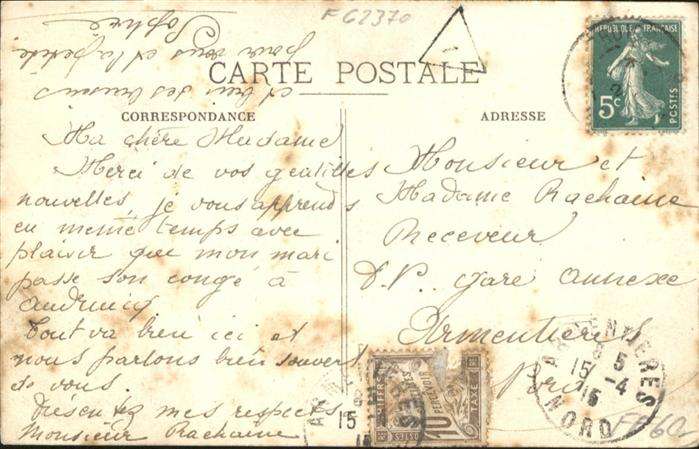 F 62370
CARTE POSTALE
CORRESPONDANCE
ADRESSE
RÉPUBLIQUE FRANÇAISE
5c
POSTES
Ma chère Madame
Merci de vos gentilles
nouvelles, je vous apprends
en même temps avec
plaisir que mon mari
passe son congé à
Audruicq
Tout va bien ici et
nous parlons bien souvent
de vous.
Présentez mes respects
Monsieur Rachaine
et bien des baisers
pour vous et la petite
Sophie
Monsieur et
Madame Rachaine
Receveur
gare annexe
Armentières
Nord
10
TAXE
ARMENTIERES
15 -4
15
NORD
15